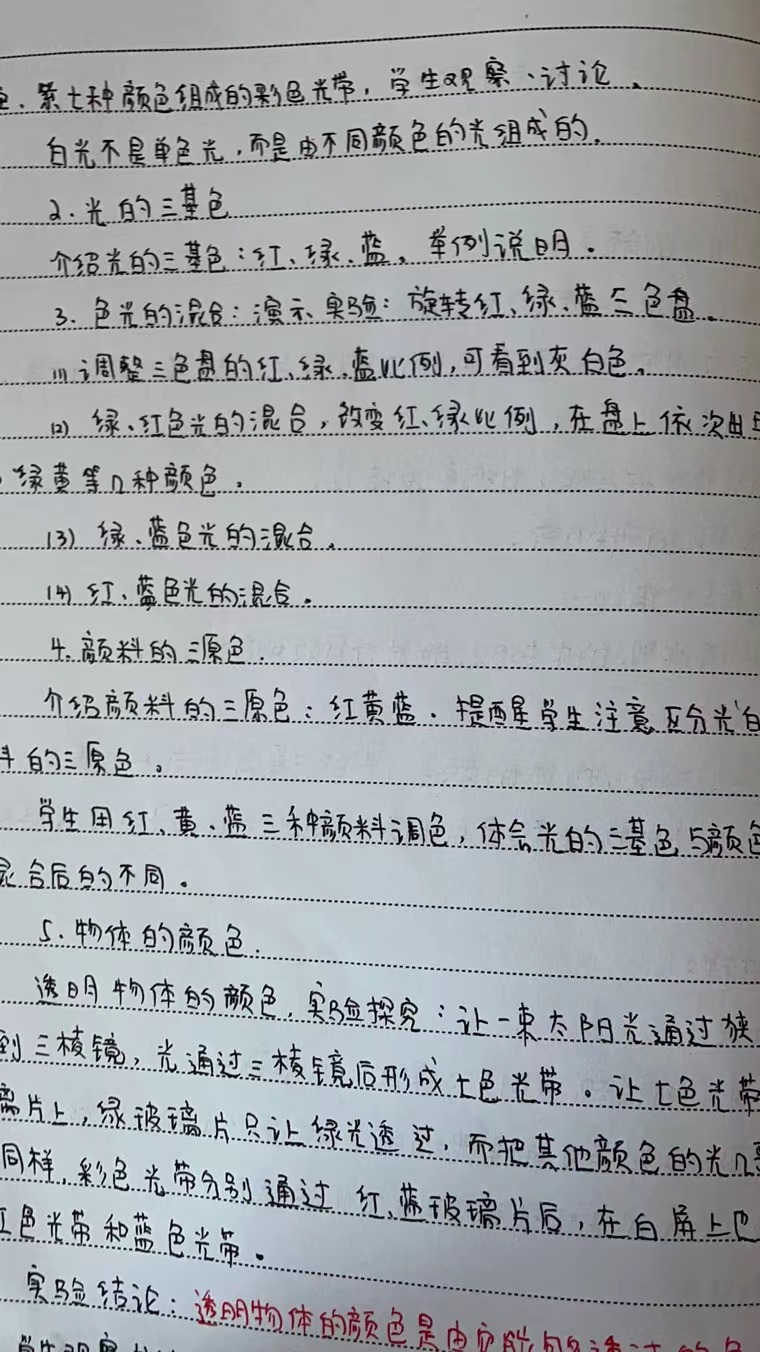 、紫七种颜色组成的彩色光带，学生观察、讨论。
白光不是单色光，而是由不同颜色的光组成的。
2.光的三基色
介绍光的三基色：红、绿、蓝。举例说明。
3.色光的混合：演示实验：旋转红、绿、蓝三色盘。
(1)调整三色盘的红、绿、蓝比例，可看到灰白色。
(2) 绿、红色光的混合，改变红、绿比例，在盘上依次出
绿黄等几种颜色。
(3) 绿、蓝色光的混合。
(4) 红、蓝色光的混合。
4.颜料的三原色.
介绍颜料的三原色：红黄蓝.提醒学生注意区分光的
的三原色。
学生用红、黄、蓝三种颜料调色，体会光的三基色与颜色
合后的不同。
5.物体的颜色.
透明物体的颜色.实验探究：让一束太阳光通过狭
到三棱镜，光通过三棱镜后形成七色光带。让七色光带
璃片上，绿玻璃片只让绿光透过，而把其他颜色的光几
同样，彩色光带分别通过红、蓝玻璃片后，在白屏上
红色光带和蓝色光带。
实验结论：透明物体的颜色是由它能够透过的色
学生观察